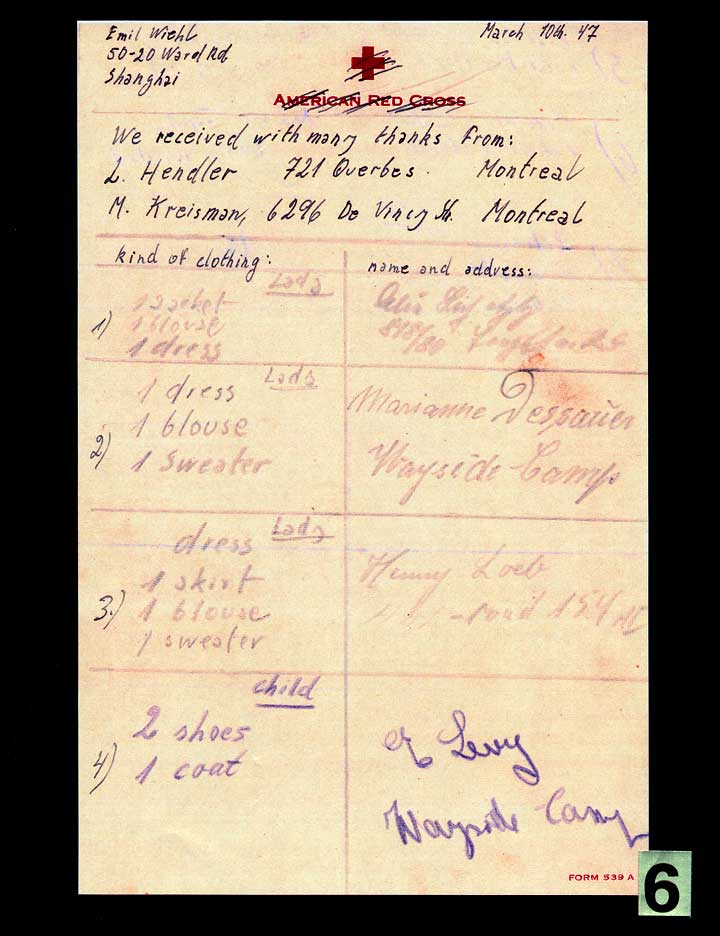 Emil Wiehl
March 10th. 47
50-20 Ward Rd
Shanghai
AMERICAN RED CROSS
We received with many thanks from:
L. Hendler 721 Querbes. Montreal
M. Kreisman, 6296 De Vincy St. Montreal
kind of clothing:
name and address:
Lady
1 jacket
1)
1 blouse
1 dress
Lady
1 dress
1 blouse
2)
1 Sweater
Marianne Dessauer
Wayside Camp
Lady
dress
1 skirt
3.)
1 blouse
1 sweater
Henny Loeb
road 154
child
2 shoes
4)
1 coat
Levy
Wayside Camp
FORM 539 A
6